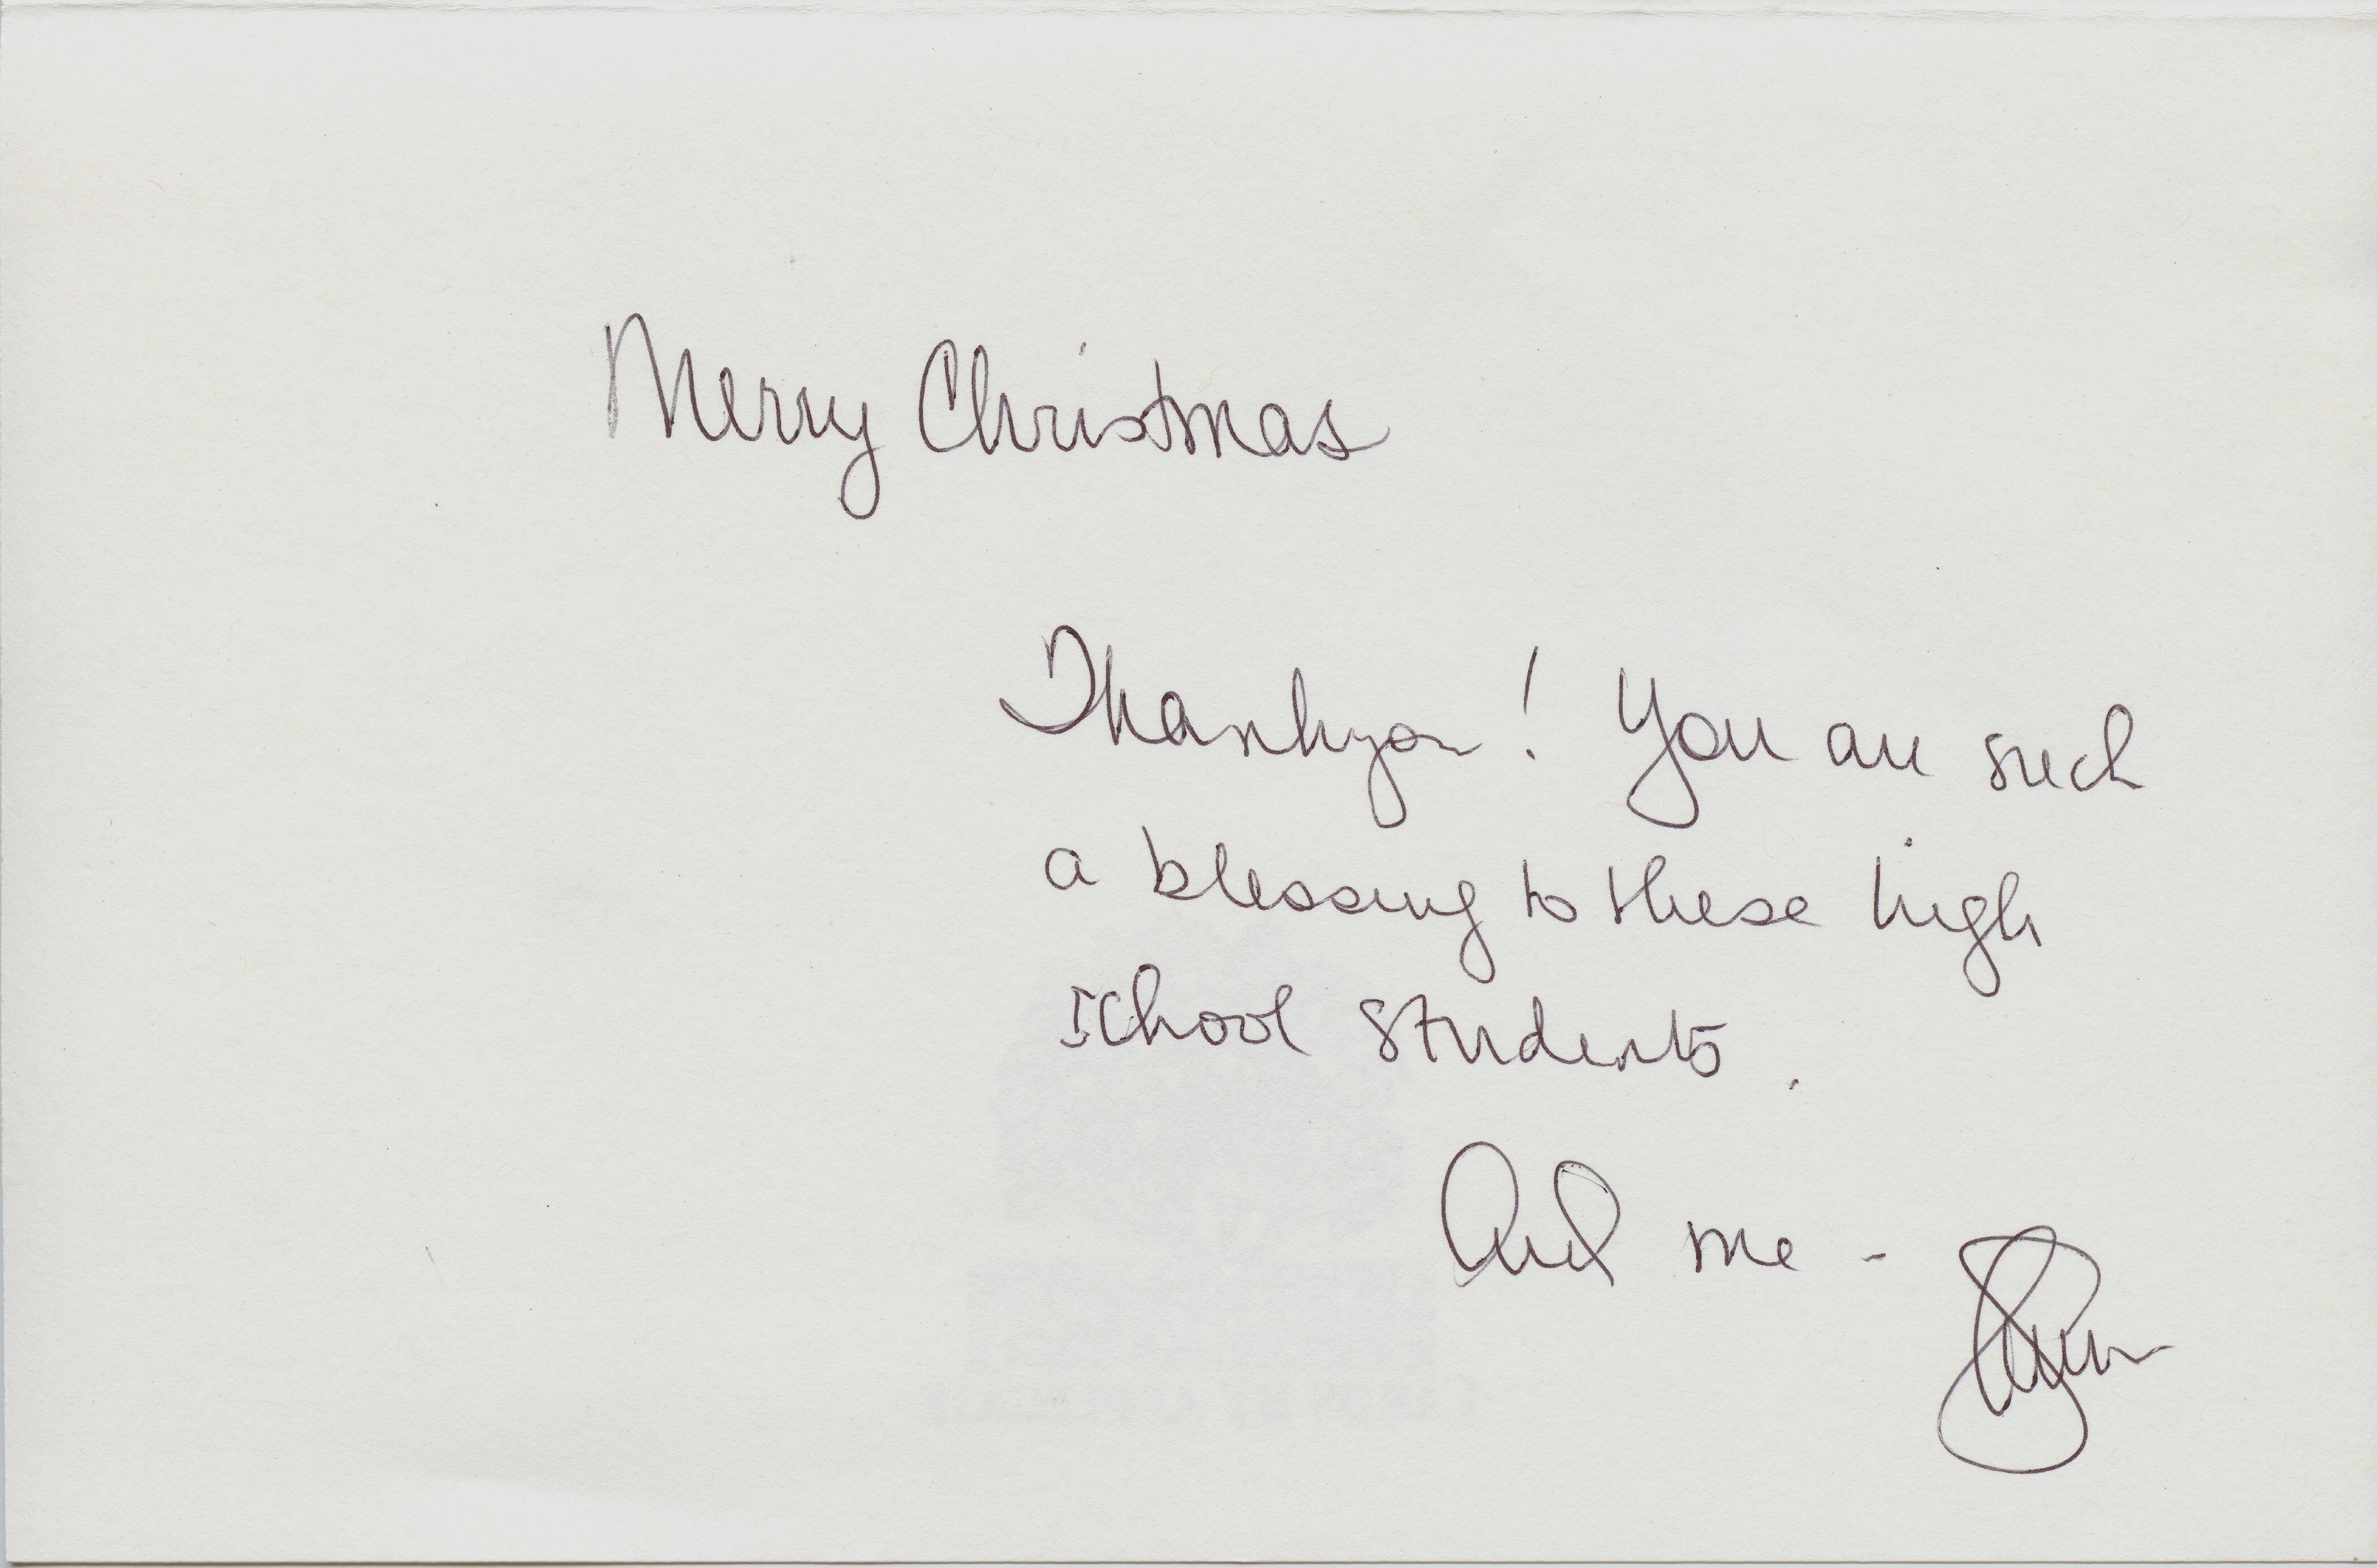 Merry Christmas
Thankyou! You are such
a blessing to these high
school students.
And me -